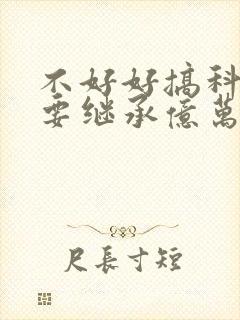 不好好搞科
要继承億萬
尺長寸短